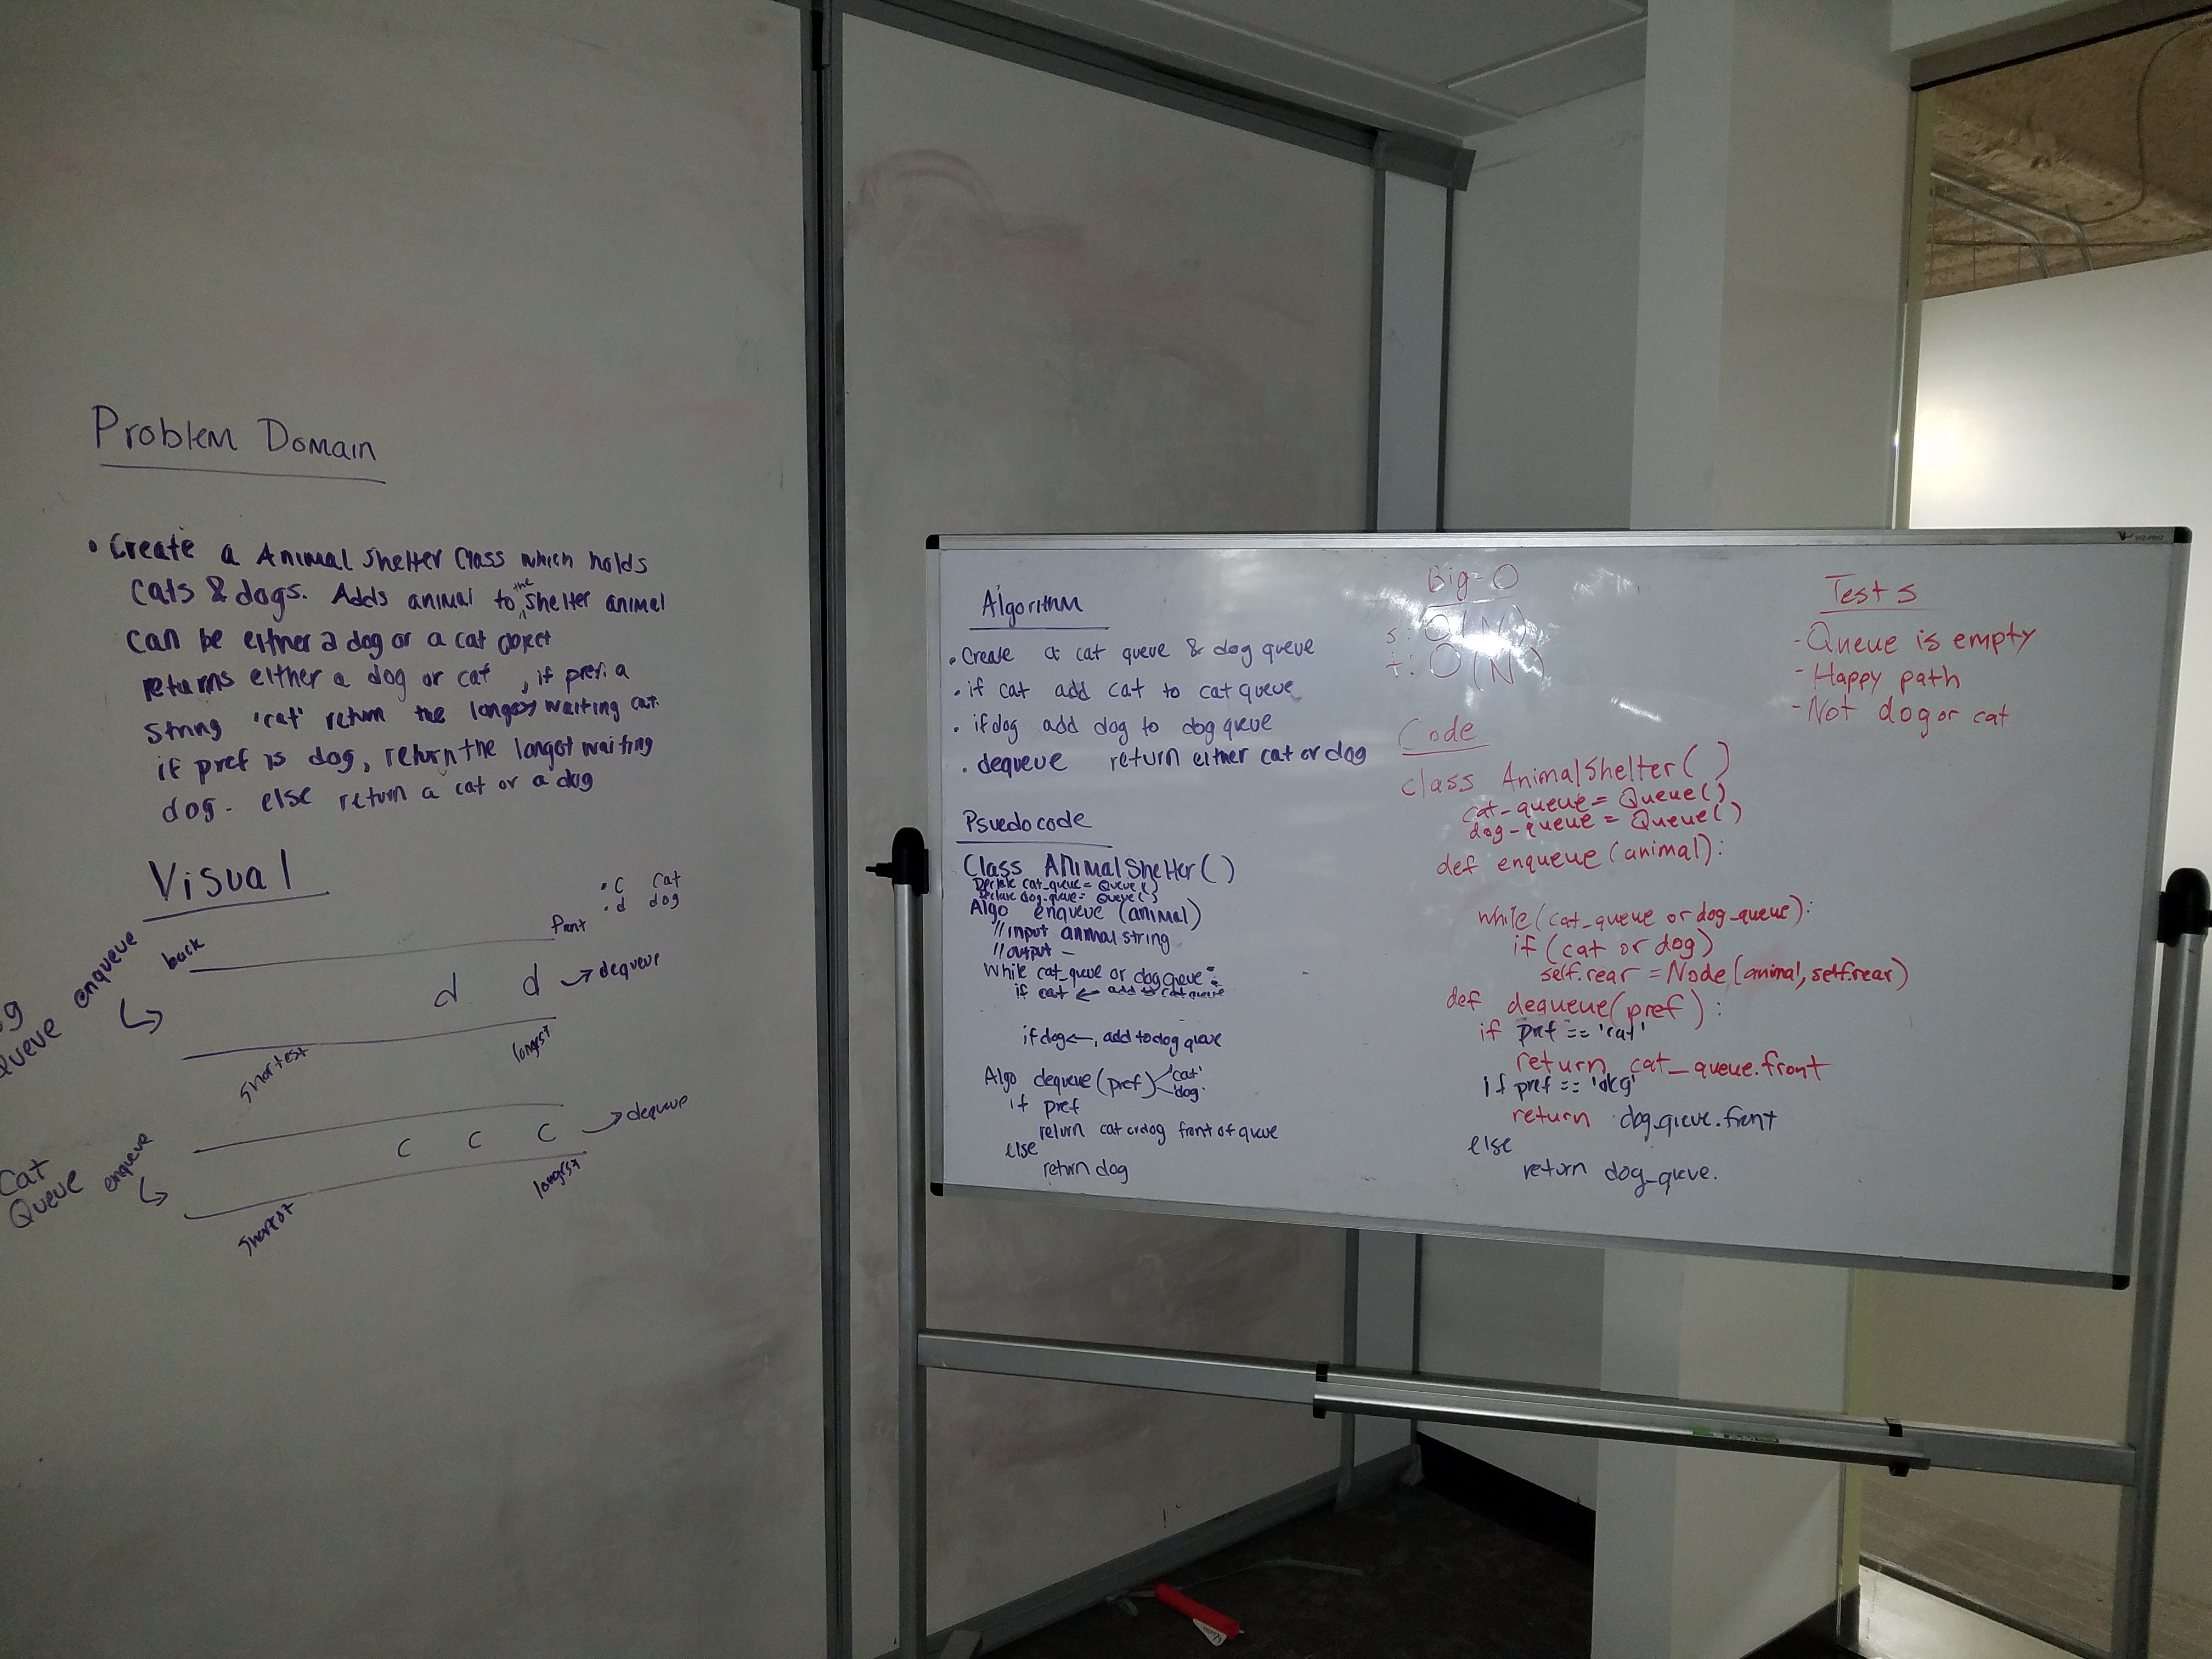 Problem Domain
• Create a Animal Shelter Class which holds
cats & dogs. Adds animal to the shelter animal
can be either a dog or a cat object
returns either a dog or cat, if pref: a
string 'cat' return the longest waiting cat.
if pref is dog, return the longest waiting
dog. else return a cat or a dog
Visual
• c cat
• d dog
back
front
enqueue
Queue
d d → dequeue
shortest
longest
Cat
Queue
enqueue
c c c → dequeue
shortest
longest
Algorithm
• Create a cat queue & dog queue
• if cat add cat to cat queue
• if dog add dog to dog queue
• dequeue return either cat or dog
Psuedocode
Class AnimalShelter()
Declare cat_queue = Queue()
Declare dog_queue = Queue()
Algo enqueue (animal)
// input animal string
// output —
While cat_queue or dog queue:
if cat ← add to cat queue
if dog ←, add to dog queue
Algo dequeue (pref) 'cat'
'dog'
if pref
return cat or dog front of queue
else
return dog
Big-O
s: O(N)
t: O(N)
Code
class AnimalShelter()
cat_queue = Queue()
dog-queue = Queue()
def enqueue (animal):
while (cat_queue or dog_queue):
if (cat or dog)
self.rear = Node(animal, self.rear)
def dequeue(pref):
if pref == 'cat'
return cat_queue.front
if pref == 'dog'
return dog_queue.front
else
return dog_queue.
Tests
- Queue is empty
- Happy path
- Not dog or cat